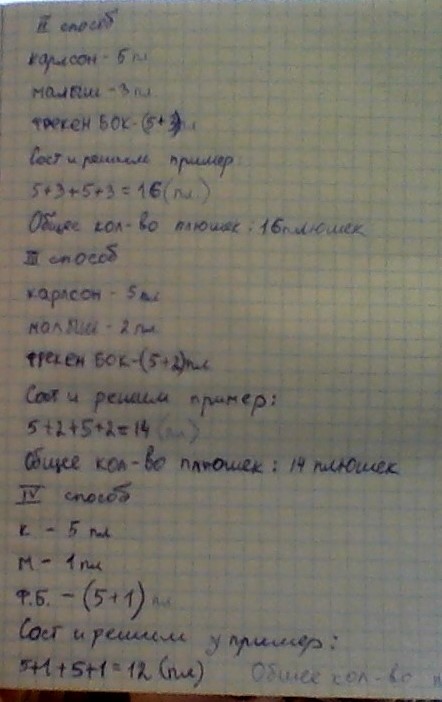 II способ
карлсон - 5 пл
малыш - 3 пл
фрекен БОК - (5+3) пл
Сост и решим пример:
5+3+5+3=16(пл.)
Общее кол-во плюшек: 16плюшек
III способ
карлсон - 5 пл
малыш - 2 пл
фрекен БОК - (5+2) пл
Сост и решим пример:
5+2+5+2=14 (пл)
Общее кол-во плюшек: 14 плюшек
IV способ
К - 5 пл
М - 1 пл
Ф.Б. - (5+1) пл
Сост и решим у пример:
5+1+5+1=12 (пл) Общее кол-во